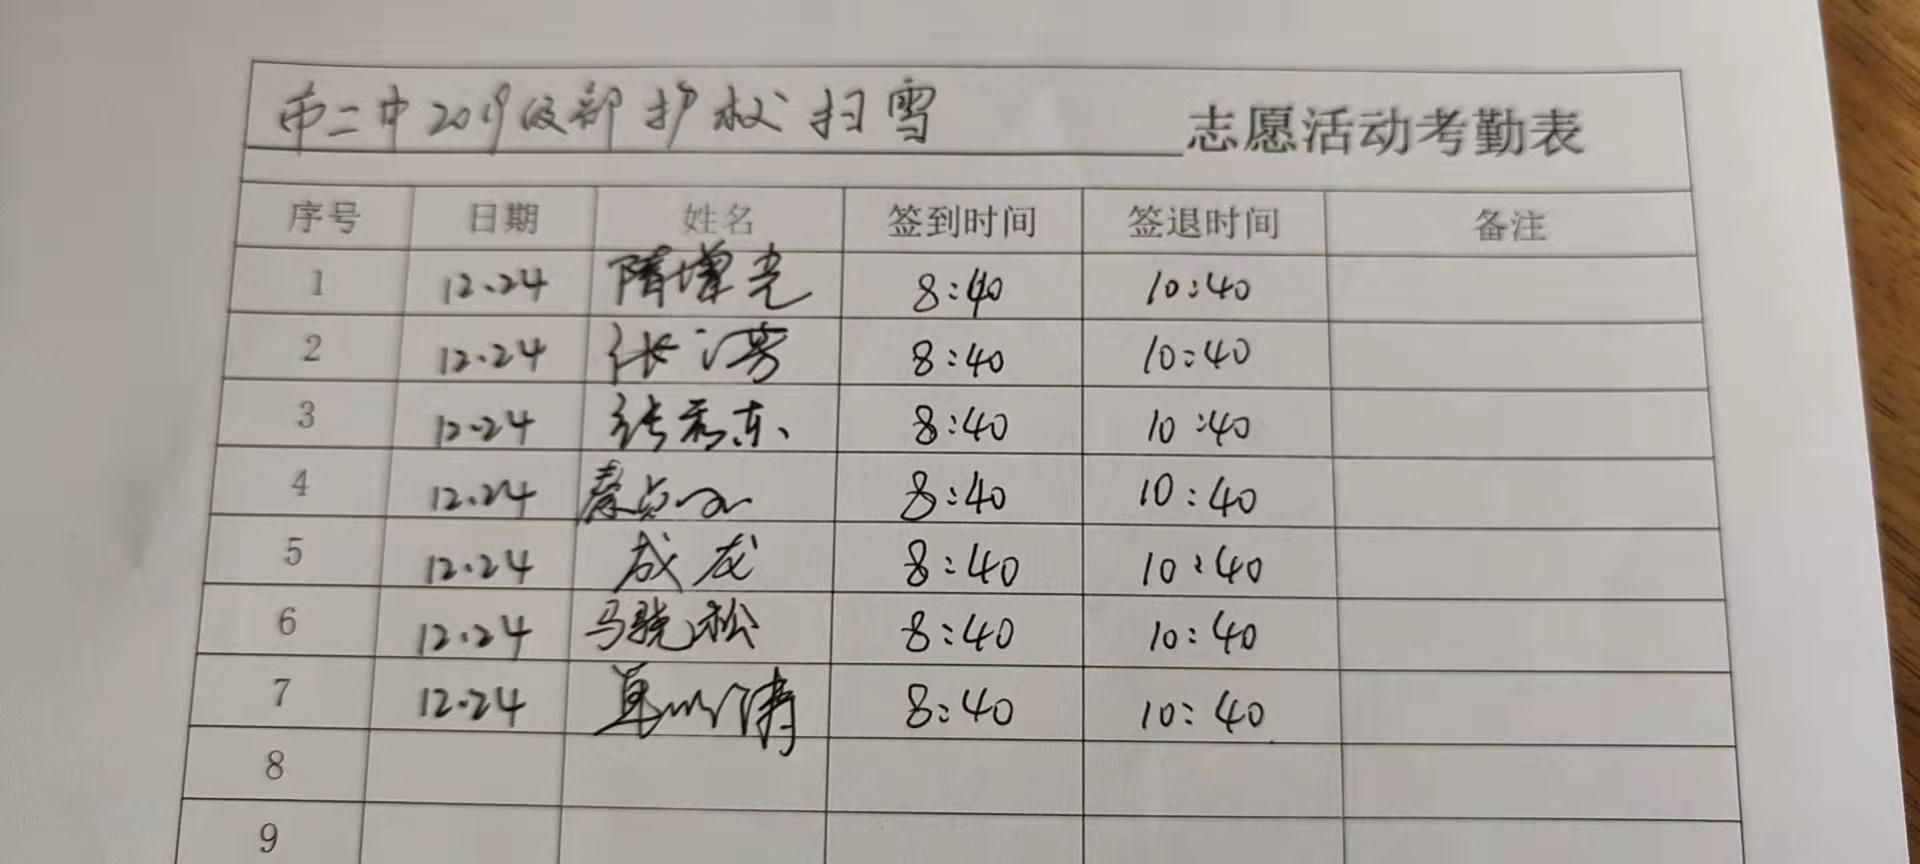 市二中2019级部护校扫雪 志愿活动考勤表
序号 日期 姓名 签到时间 签退时间 备注
1 12.24 隋增光 8:40 10:40
2 12.24 张 8:40 10:40
3 12.24 张秀东 8:40 10:40
4 12.24 秦 8:40 10:40
5 12.24 成龙 8:40 10:40
6 12.24 马骁松 8:40 10:40
7 12.24 8:40 10:40
8
9